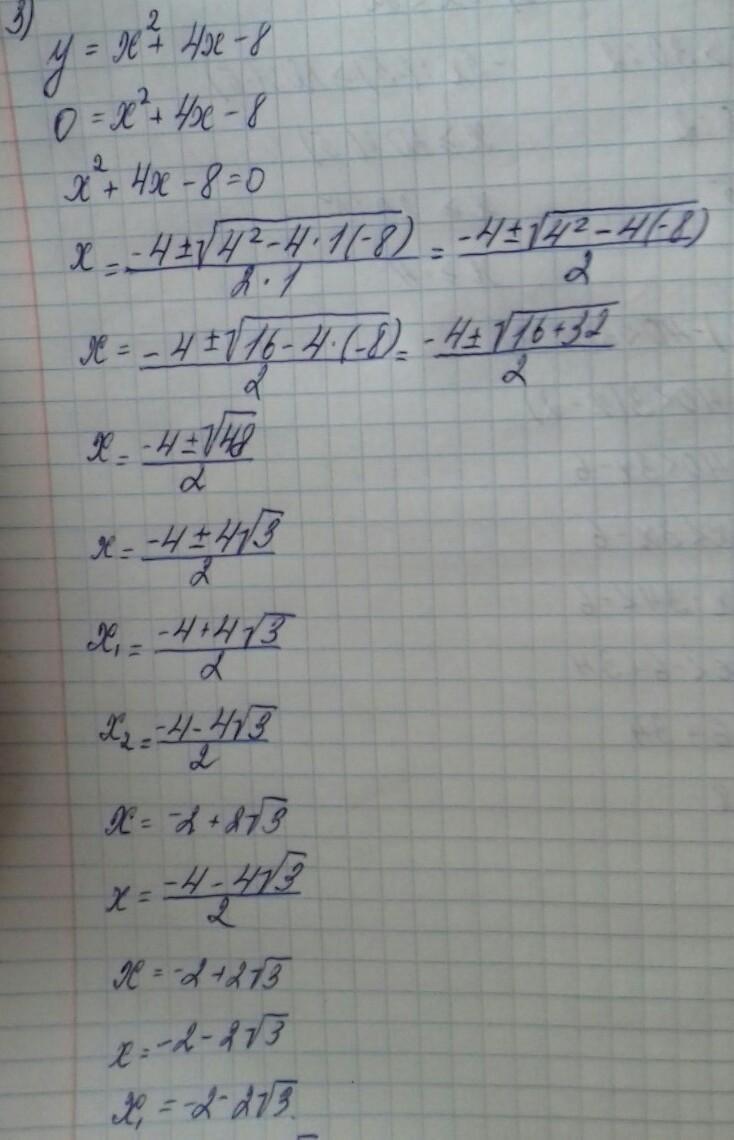 3)
y = x² + 4x - 8
0 = x² + 4x - 8
x² + 4x - 8 = 0
x = (-4 ± √(4² - 4 · 1(-8))) / (2 · 1) = (-4 ± √(4² - 4(-8))) / 2
x = (-4 ± √(16 - 4 · (-8))) / 2 = (-4 ± √(16 + 32)) / 2
x = (-4 ± √48) / 2
x = (-4 ± 4√3) / 2
x₁ = (-4 + 4√3) / 2
x₂ = (-4 - 4√3) / 2
x = -2 + 2√3
x = (-4 - 4√3) / 2
x = -2 + 2√3
x = -2 - 2√3
x₁ = -2 - 2√3.